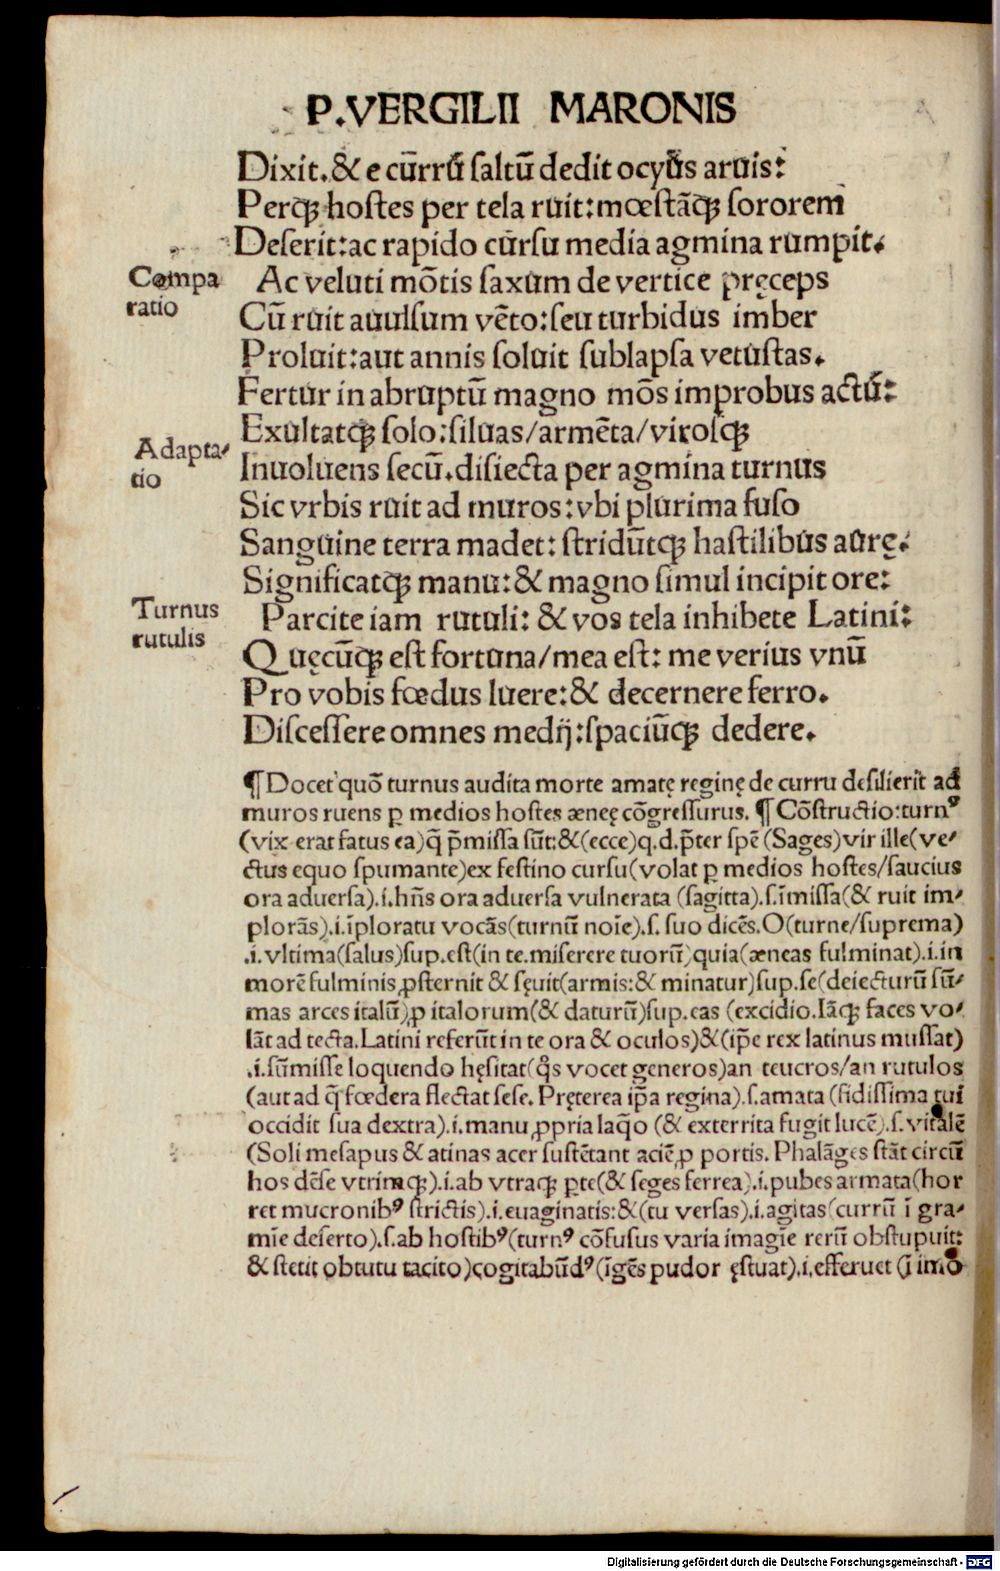 P.VERGILII MARONIS
Dixit.& e cūrrū saltū dedit ocyūs aruis:
Perq̃ hostes per tela ruit:mœstāq̃ sororem
Deserit:ac rapido cursu media agmina rumpit.
Compa
ratio
Ac veluti mōtis saxum de vertice pręceps
Cū ruit auulsum vēto:seu turbidus imber
Proluit:aut annis soluit sublapsa vetustas.
Fertur in abruptū magno mōs improbus actū:
Exultatq̃ solo:siluas/armēta/virosq̃
Adapta-
tio
Inuoluens secū.disiecta per agmina turnus
Sic vrbis ruit ad muros:vbi plurima fuso
Sanguine terra madet: stridūtq̃ hastilibus aurę.
Significatq̃ manu:& magno simul incipit ore:
Turnus
rutulis
Parcite iam rutuli: & vos tela inhibete Latini:
Quęcūq̃ est fortuna/mea est: me verius vnū
Pro vobis fœdus luere:& decernere ferro.
Discessere omnes medij:spaciūq̃ dedere.
¶Docet quō turnus audita morte amatę reginę de curru desilierit ad
muros ruens ꝑ medios hostes æneę cōgressurus. ¶ Cōstructio:turnꝰ
(vix erat fatus ea)q̄ p̄missa sūt:&(ecce)q.d.p̄ter spē (Sages)vir ille(ve-
ctus equo spumante)ex festino cursu(volat ꝑ medios hostes/saucius
ora aduersa).i.hn̄s ora aduersa vulnerata (sagitta).s.īmissa(& ruit im-
plorās).i.īploratu vocās(turnū noīe).s. suo dicēs.O(turne/suprema)
.i.vltima(salus)sup.est(in te.miserere tuorū)quia(æneas fulminat).i.in
morē fulminis ꝓsternit & sęuit(armis:& minatur)sup.se(deiecturū sū-
mas arces italū)ꝓ italorum(& daturū)sup.eas (excidio.Iāq̃ faces vo-
lāt ad tecta.Latini referūt in te ora & oculos)&(ip̄e rex latinus mussat)
.i.sūmisse loquendo hęsitat(q̄s vocet generos)an teucros/an rutulos
(aut ad q̄ fœdera flectat sese. Pręterea ip̄a regina).s.amata (fidissima tui
occidit sua dextra).i.manu ꝓpria laq̄o (& exterrita fugit lucē).s.vitalē
(Soli mesapus & atinas acer sustētant aciē ꝓ portis. Phalāges stāt circū
hos dēse vtrimq̃).i.ab vtraq̃ ꝑte(& seges ferrea).i.pubes armata(hor
ret mucronibꝰ strictis).i.euaginatis:&(tu versas).i.agitas(currū ī gra-
mīe deserto).s.ab hostibꝰ(turnꝰ cōfusus varia imagīe rerū obstupuit:
& stetit obtutu tacito)cogitabūdꝰ(īgēs pudor ęstuat).i.efferuet (ī imo
Digitalisierung gefördert durch die Deutsche Forschungsgemeinschaft - DFG